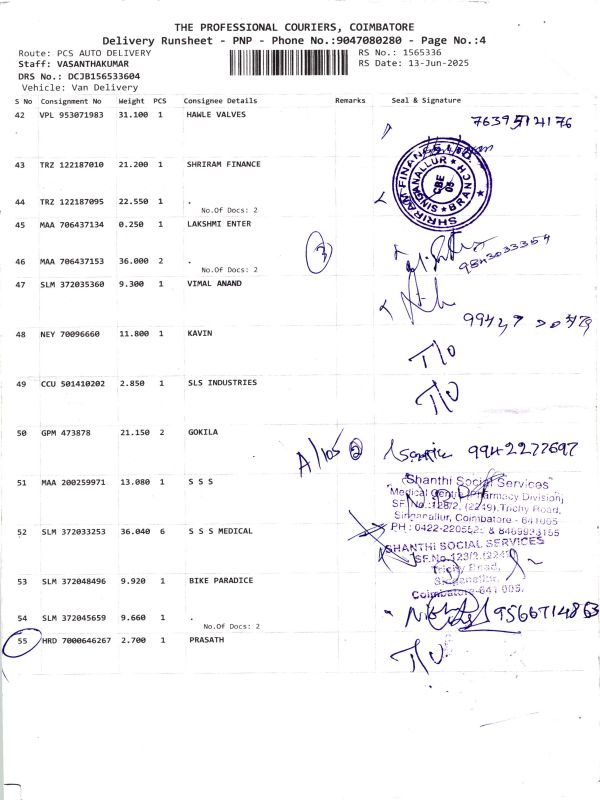 THE PROFESSIONAL COURIERS, COIMBATORE
Delivery Runsheet - PNP - Phone No.:9047080280 - Page No.:4
Route: PCS AUTO DELIVERY RS No.: 1565336
Staff: VASANTHAKUMAR RS Date: 13-Jun-2025
DRS No.: DCJB156533604
Vehicle: Van Delivery
S No Consignment No Weight PCS Consignee Details Remarks Seal & Signature
42 VPL 953071983 31.100 1 HAWLE VALVES 7639514176
43 TRZ 122187010 21.200 1 SHRIRAM FINANCE
SHRIRAM FINANCE LTD. SINGANALLUR * BRANCH * CBE 03
44 TRZ 122187095 22.550 1 .
No.Of Docs: 2
45 MAA 706437134 0.250 1 LAKSHMI ENTER
46 MAA 706437153 36.000 2 . 3 9843033354
No.Of Docs: 2
47 SLM 372035360 9.300 1 VIMAL ANAND
48 NEY 70096660 11.800 1 KAVIN T/O
49 CCU 501410202 2.850 1 SLS INDUSTRIES T/O
50 GPM 473878 21.150 2 GOKILA A/105 2 9942277697
51 MAA 200259971 13.080 1 S S S
Shanthi Social Services
Medical Centre (Pharmacy Division)
SF.No.:128/2, (2249),Trichy Road,
Singanallur, Coimbatore - 641005
52 SLM 372033253 36.040 6 S S S MEDICAL
SHANTHI SOCIAL SERVICES
Trichy Road,
Singanallur,
Coimbatore-641 005.
53 SLM 372048496 9.920 1 BIKE PARADICE
54 SLM 372045659 9.660 1 . 9566714863
No.Of Docs: 2
55 HRD 7000646267 2.700 1 PRASATH T/O